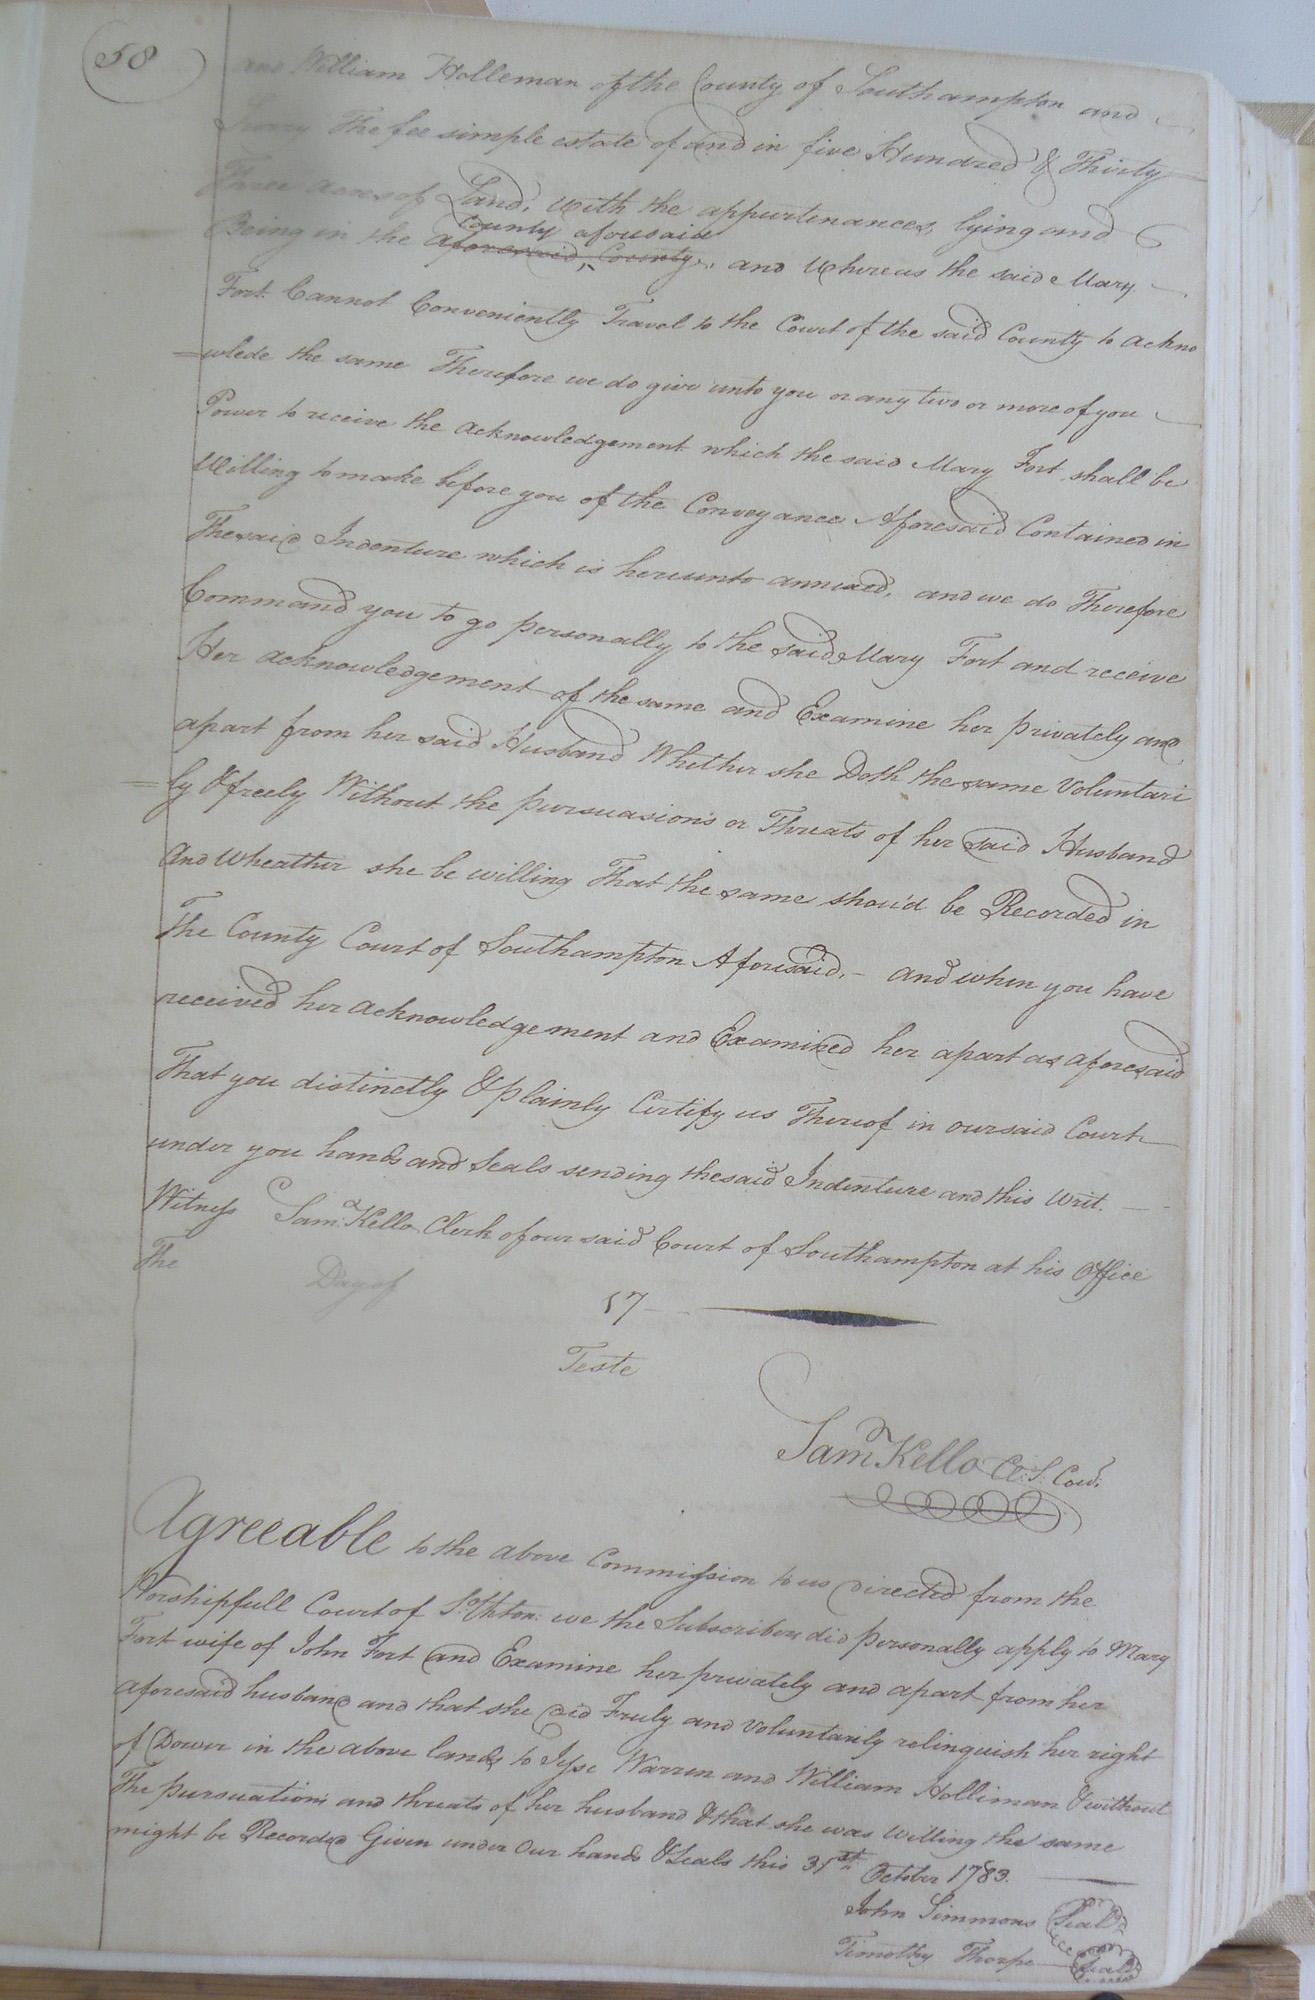 58
and William Holleman of the County of Southampton and
Surry The fee simple estate of and in five Hundred & Thirty
Three acres of Land, with the appurtenances lying and
County aforesaid
Being in the aforesaid County, and Whereas the said Mary
Fort Cannot Conveniently Travel to the Court of the said County to ackno
=wlede the same Therefore we do give unto you or any two or more of you
Power to receive the acknowledgement which the said Mary Fort shall be
Willing to make before you of the Conveyance Aforesaid Contained in
The said Indenture which is hereunto annexed, and we do Therefore
Command you to go personally to the said Mary Fort and receive
Her acknowledgement of the same and Examine her privately and
apart from her said Husband Whether she Doth the same Voluntari
=ly & freely Without the pursuasions or Threats of her said Husband
And Wheather she be willing That the same shou'd be Recorded in
The County Court of Southampton Aforesaid, - and when you have
received her acknowledgement and Examined her apart as aforesaid
That you distinctly & plainly Certify us Thereof in our said Court
under you hands and Seals sending the said Indenture and this Writ.
Witness Saml. Kello Clerk of our said Court of Southampton at his Office
The Day of 17
Teste
Saml. Kello Cl. S. Cou.
Agreeable to the above Commission to us directed from the
Worshipfull Court of So.thton: we the Subscribers did personally apply to Mary
Fort wife of John Fort and Examine her privately and apart from her
aforesaid husband and that she did Truly and voluntarily relinquish her right
of Dower in the above lands to Jesse Warren and William Holliman & without
The pursuations and threats of her husband & that she was willing the same
might be Recorded Given under Our hands & Seals this 31st October 1783.
John Simmons Seal
Timothy Thorpe Seal